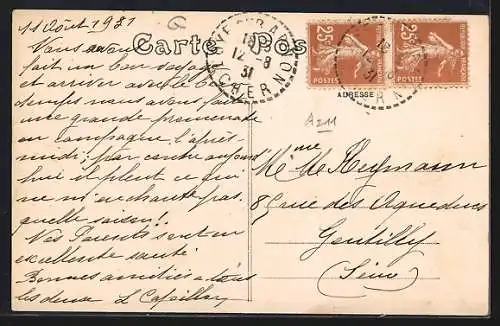 11 Août 1931
Carte Pos
12 -8
31
CHER
25c
POSTES
25c
POSTES
ADRESSE
Vous avons
fait un bon voyage
et arriver avec le beau
temps nous avons fait
une grande promenade
en campagne l'après
midi; par contre aujourd
hui il pleut ce qui
ne m'enchante pas.
quelle saison!
Vos Parents sont en
excellente santé
Bonnes amitiés à tous
les deux L
A211
Mr Mme Heymann
8 rue des Aqueducs
Gentilly
(Seine)